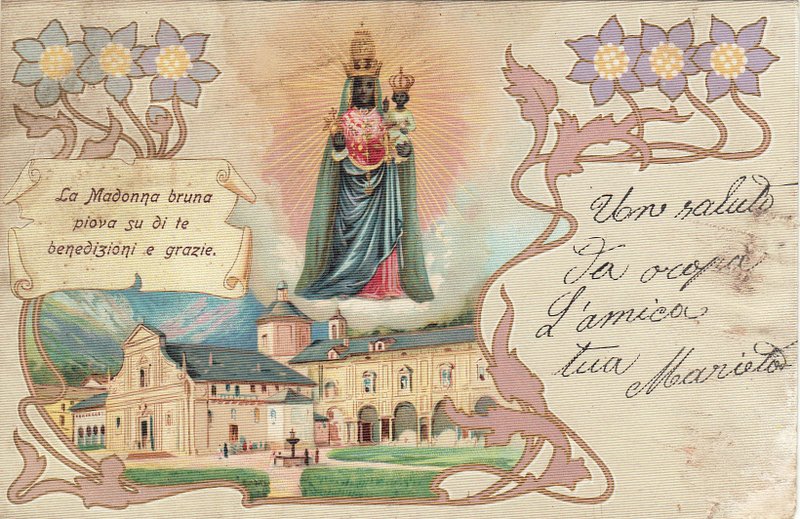 La Madonna bruna
piova su di te
benedizioni e grazie.
Un saluto
da oropa
L'amica
tua Marieta